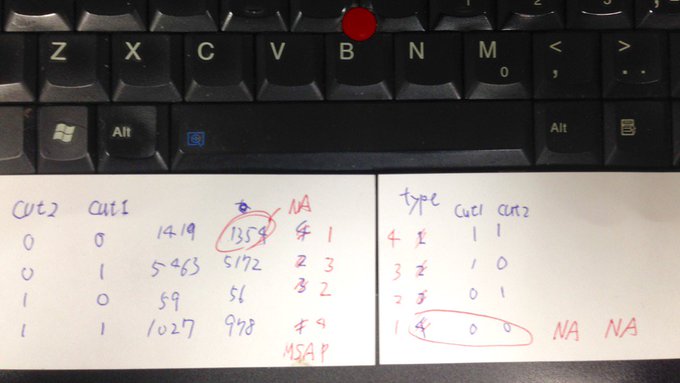 Z X C V B N M < >
0 , .
Alt Alt
cut2 cut1 NA
0 0 1419 1354 1
0 1 5463 5172 3
1 0 59 56 2
1 1 1027 978 4
MSAP
type cut1 cut2
4 1 1 1
3 2 1 0
2 3 0 1
1 4 0 0 NA NA